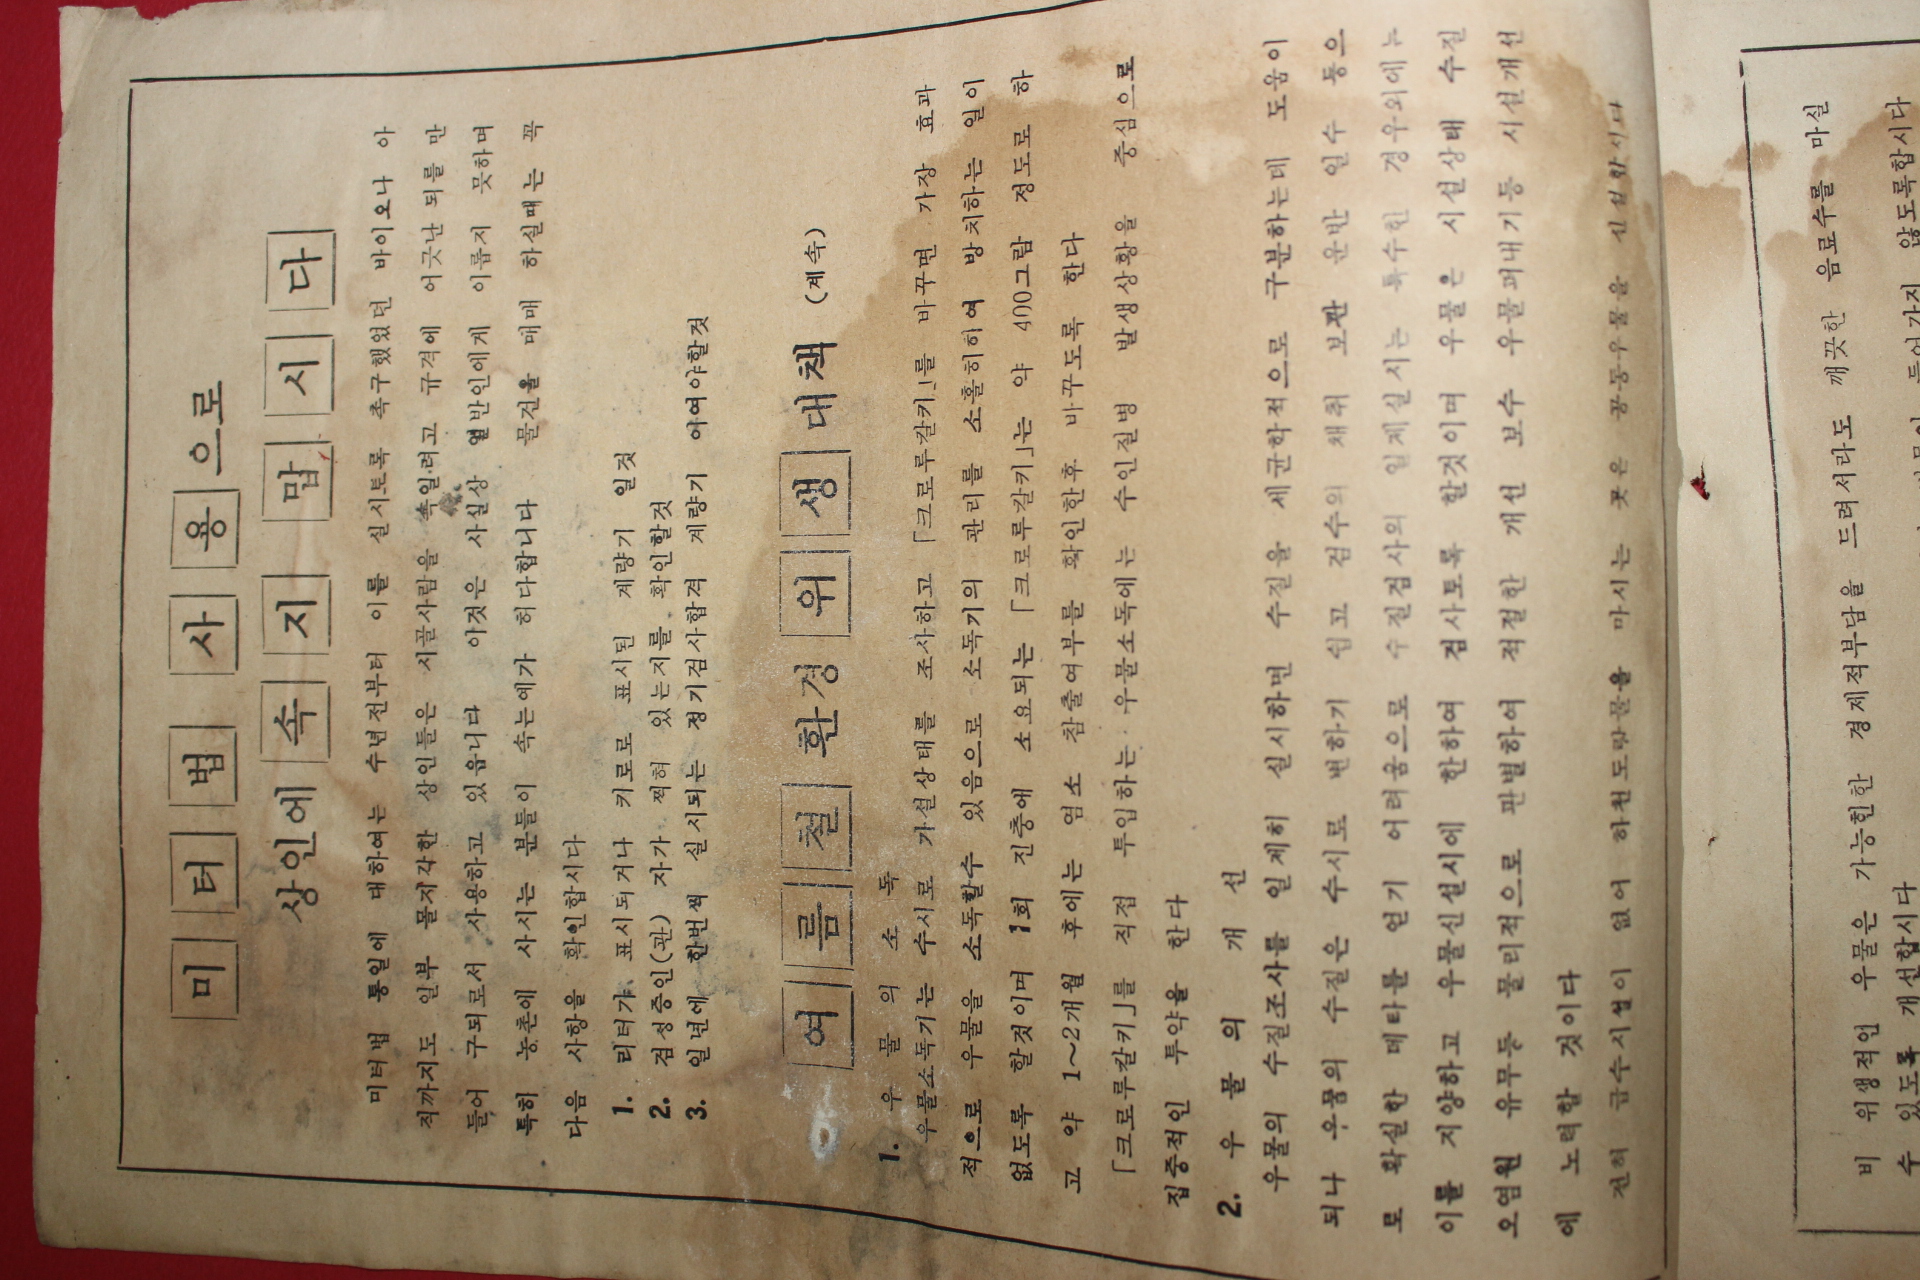 미터법 사용으로
상인에 속지 맙시다
미터법 통일에 대하여는 수년전부터 이를 실시토록 촉구했었던 바이오나 아
직까지도 일부 몰지각한 상인들은 시골사람을 속일려고 규격에 어긋난 되를 만
들어 구되로서 사용하고 있읍니다 아것은 사실상 열반인에게 이롭지 못하며
특히 농촌에 사시는 분들이 속는예가 허다합니다 물건을 매매 하실때는 꼭
다음 사항을 확인합시다
1. 리터가 표시되거나 키로로 표시된 계량기 일것
2. 검정증인(관) 자가 찍혀 있는지를 확인할것
3. 일년에 한번씩 실시되는 정기검사합격 계량기 이여야할것
여름철 환경위생 대책 (계속)
1. 우물의 소독
우물소독기는 수시로 가설상태를 조사하고 「크로루칼키」를 바꾸면 가장 효과
적으로 우물을 소독할수 있음으로 소독기의 관리를 소홀히하여 방치하는 일이
없도록 할것이며 1회 진충에 소요되는 「크로루칼키」는 약 400그람 정도로 하
고 약 1~2개월 후에는 염소 참출여부를 확인한후 바꾸도록 한다
「크로루칼키」를 직접 투입하는 우물소독에는 수인질병 발생상황을 중심으로
집중적인 투약을 한다
2. 우물의 개선
우물의 수질조사를 일제히 실시하면 수질을 세균학적으로 구분하는데 도움이
되나 우물의 수질은 수시로 변하기 쉽고 검수의 채취 보관 운반 일수 등으
로 확실한 데타를 얻기 어려움으로 수질검사의 일제실시는 특수한 경우외에는
이를 지양하고 우물신설시에 한하여 검사토록 할것이며 우물은 시설상태 수질
오염원 유무등 물리적으로 판별하여 적절한 개선 보수 우물퍼내기등 시설개선
에 노력할 것이다
전혀 급수시설이 없어 하천도랑물을 마시는 곳은 공동우물을 신설합시다
비 위생적인 우물은 가능힌한 경제적부담을 드려서라도 깨끗한 음료수를 마실
수 있도록 개선합시다
들어가지 않도록합시다